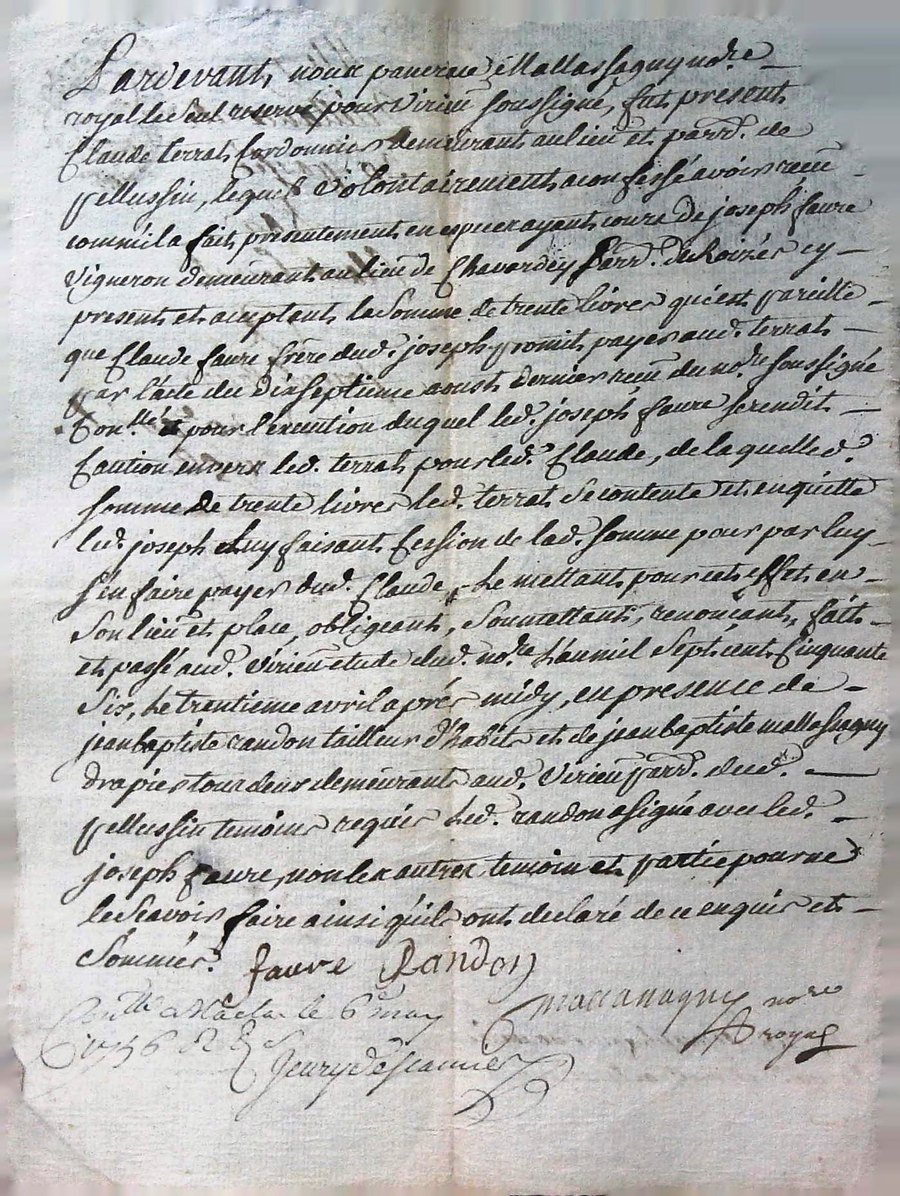 Pardevant nous Mallassagny no.re
royal le Seul reservé pour virieu soussigné, fut present
Claude terrat Cordonnier demeurant au lieu et parr. de
pellussin, lequel volontairement a confessé avoir receu
comm'il a fait presentement en especes ayant cours de joseph faure
Vigneron demeurant au lieu de Chavardey parr. de Roizés cy
present et acceptant la Somme de trente livres qu'est pareille
que Claude faure frere dud. joseph promit payer aud. terrat
par l'acte du dixseptieme aoust dernier receu du no.re soussigné
Con.llé et pour l'exeution duquel led. joseph faure se rendit
Caution envers led. terrat pour led. Claude, de laquelle d.
somme de trente livres led. terrat se contente et en quitte
led. joseph et luy faisant Cession de lad. somme pour par luy
s'en faire payer dud. Claude, Le mettant pour cet effet en
Son lieu et place, obligeant, Soumettant, renonçant, fait
et passé aud. virieu etude dud. no.re L'an mil Sept cent Cinquante
Six, Le trentieme avril aprés midy, en presence de
jean baptiste randon tailleur d'habits et de jean baptiste mallassagny
drapier tous deux demeurants aud. virieu parr. dud.
pellussin temoins requis Led. randon a signé avec led.
joseph faure, non les autres temoin et partie pour ne
le Scavoir faire ainsi qu'ils ont declaré de ce enquis et
Sommés.
faure Randon
Mallassagny no.re
royal
Con.llé a le 6.e may
1756